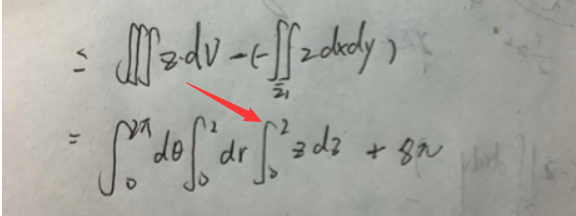 ≤ ∭ z·dV - (-∬_{Σ₁} 2dxdy)
= ∫₀^{2π} dθ ∫₀² dr ∫₀² z dz + 8π